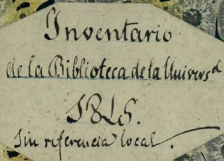 Inventario
de la Biblioteca de la Univers.d
1845.
Sin referencia local.